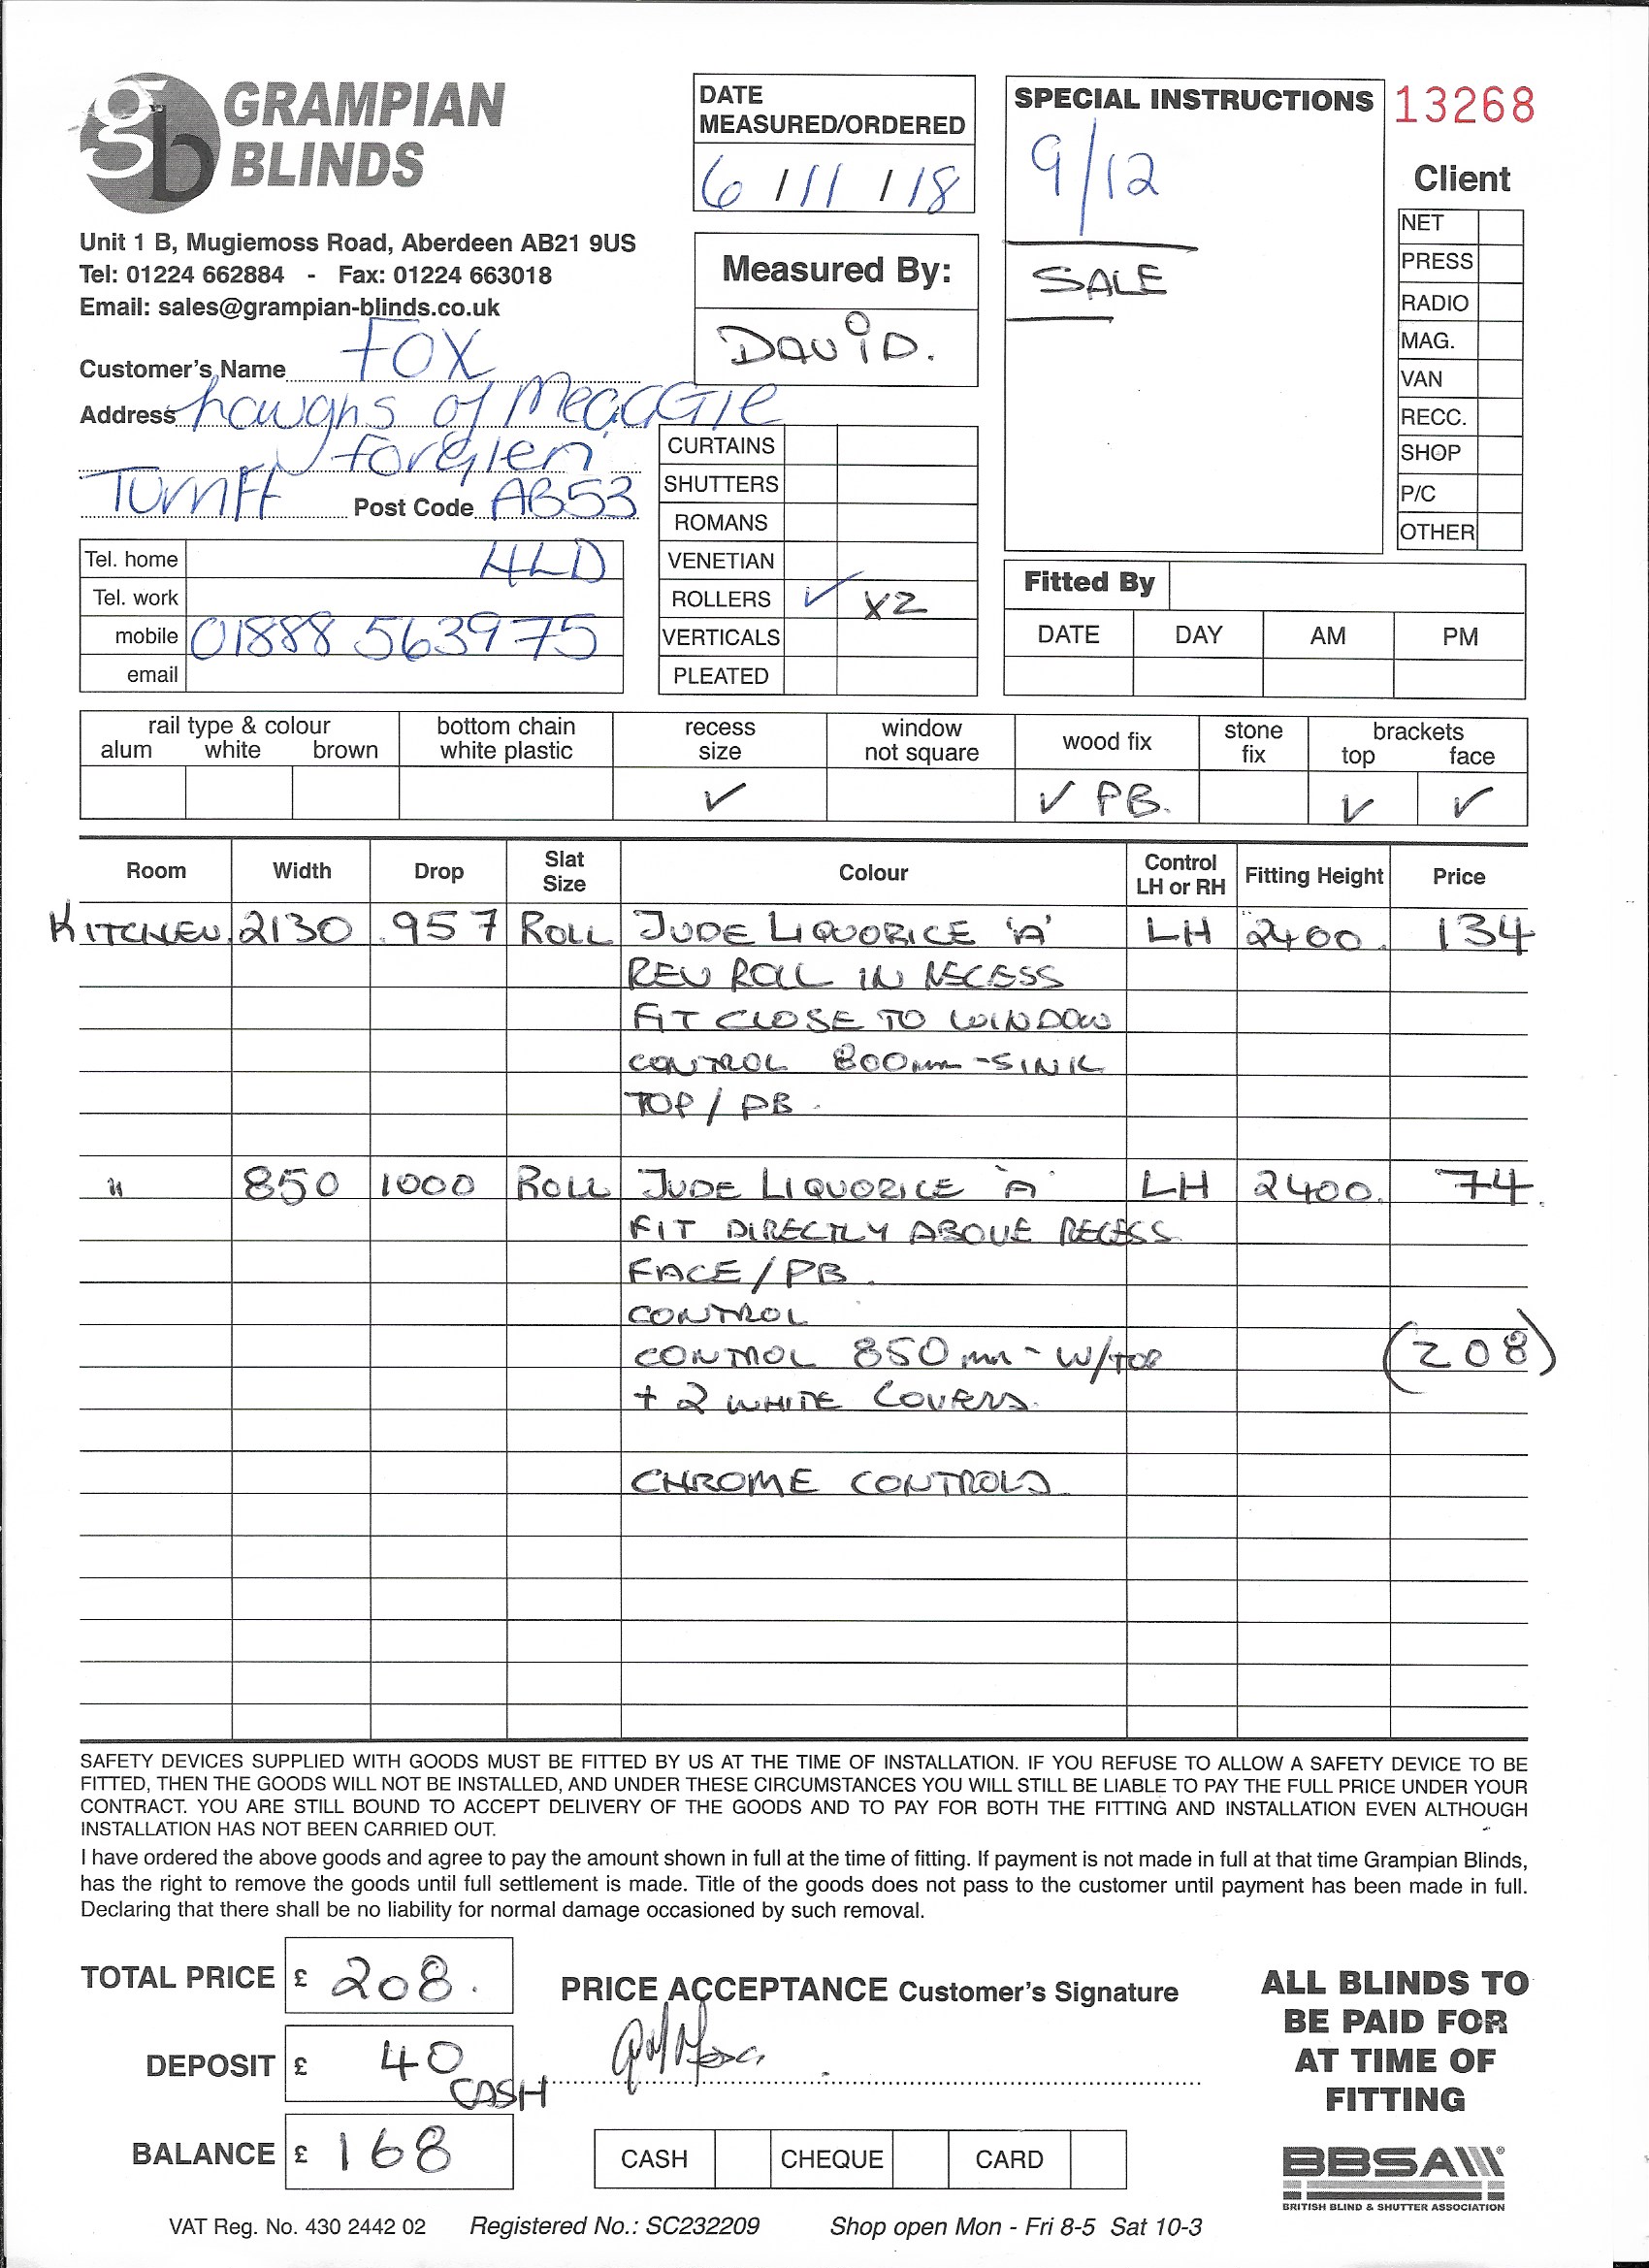 gb GRAMPIAN BLINDS
Unit 1 B, Mugiemoss Road, Aberdeen AB21 9US
Tel: 01224 662884 - Fax: 01224 663018
Email: sales@grampian-blinds.co.uk
DATE MEASURED/ORDERED
6/11/18
Measured By:
DAVID.
SPECIAL INSTRUCTIONS
9/12
SALE
13268
Client
NET
PRESS
RADIO
MAG.
VAN
RECC.
SHOP
P/C
OTHER
Customer's Name FOX
Address haughs of
forglen
Post Code AB53
4LD
Tel. home
Tel. work
mobile 01888 563975
email
CURTAINS
SHUTTERS
ROMANS
VENETIAN
ROLLERS ✓ X2
VERTICALS
PLEATED
Fitted By
DATE DAY AM PM
rail type & colour
alum white brown
bottom chain white plastic
recess size ✓
window not square
wood fix ✓ PB.
stone fix
brackets
top ✓ face ✓
Room Width Drop Slat Size Colour Control LH or RH Fitting Height Price
KITCHEN 2130 957 ROLL JUDE LIQUORICE 'A' LH 2400. 134
REV ROLL IN RECESS
FIT CLOSE TO WINDOW
CONTROL 800mm - SINK
TOP / PB.
" 850 1000 ROLL JUDE LIQUORICE 'A' LH 2400. 74.
FIT DIRECTLY ABOVE RECESS
FACE / PB.
CONTROL
CONTROL 850mm - W/TOP (208)
+ 2 WHITE COVERS.
CHROME CONTROLS
SAFETY DEVICES SUPPLIED WITH GOODS MUST BE FITTED BY US AT THE TIME OF INSTALLATION. IF YOU REFUSE TO ALLOW A SAFETY DEVICE TO BE
FITTED, THEN THE GOODS WILL NOT BE INSTALLED, AND UNDER THESE CIRCUMSTANCES YOU WILL STILL BE LIABLE TO PAY THE FULL PRICE UNDER YOUR
CONTRACT. YOU ARE STILL BOUND TO ACCEPT DELIVERY OF THE GOODS AND TO PAY FOR BOTH THE FITTING AND INSTALLATION EVEN ALTHOUGH
INSTALLATION HAS NOT BEEN CARRIED OUT.
I have ordered the above goods and agree to pay the amount shown in full at the time of fitting. If payment is not made in full at that time Grampian Blinds,
has the right to remove the goods until full settlement is made. Title of the goods does not pass to the customer until payment has been made in full.
Declaring that there shall be no liability for normal damage occasioned by such removal.
TOTAL PRICE £ 208.
DEPOSIT £ 40 CASH
BALANCE £ 168
PRICE ACCEPTANCE Customer's Signature
CASH CHEQUE CARD
ALL BLINDS TO
BE PAID FOR
AT TIME OF
FITTING
BBSA
BRITISH BLIND & SHUTTER ASSOCIATION
VAT Reg. No. 430 2442 02 Registered No.: SC232209 Shop open Mon - Fri 8-5 Sat 10-3